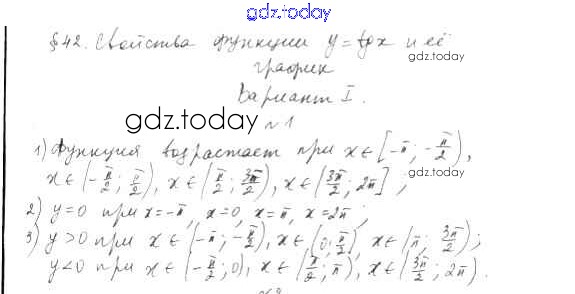 gdz.today
§42. Свойства функции y = tgx и её
gdz.today
график
Вариант I.
gdz.today
№1
1) Функция возрастает при x ∈ [-π; -π/2),
x ∈ (-π/2; π/2), x ∈ (π/2; 3π/2), x ∈ (3π/2; 2π];
2) y=0 при x=-π, x=0, x=π, x=2π;
3) y>0 при x ∈ (-π; -π/2), x ∈ (0; π/2), x ∈ (π; 3π/2);
y<0 при x ∈ (-π/2; 0), x ∈ (π/2; π), x ∈ (3π/2; 2π).
gdz.today